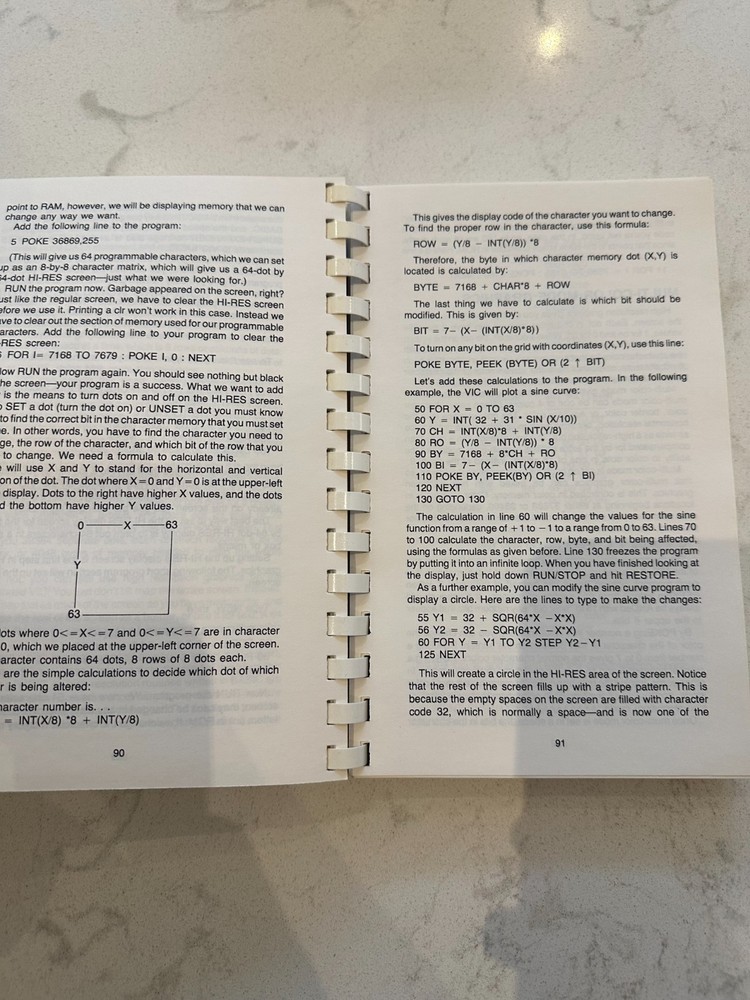 point to RAM, however, we will be displaying memory that we can
change any way we want.
Add the following line to the program:
5 POKE 36869,255
(This will give us 64 programmable characters, which we can set
up as an 8-by-8 character matrix, which will give us a 64-dot by
64-dot HI-RES screen—just what we were looking for.)
RUN the program now. Garbage appeared on the screen, right?
ust like the regular screen, we have to clear the HI-RES screen
efore we use it. Printing a clr won't work in this case. Instead we
ve to clear out the section of memory used for our programmable
aracters. Add the following line to your program to clear the
-RES screen:
FOR I= 7168 TO 7679 : POKE I, 0 : NEXT
ow RUN the program again. You should see nothing but black
he screen—your program is a success. What we want to add
is the means to turn dots on and off on the HI-RES screen.
o SET a dot (turn the dot on) or UNSET a dot you must know
to find the correct bit in the character memory that you must set
e. In other words, you have to find the character you need to
ge, the row of the character, and which bit of the row that you
to change. We need a formula to calculate this.
e will use X and Y to stand for the horizontal and vertical
on of the dot. The dot where X=0 and Y=0 is at the upper-left
display. Dots to the right have higher X values, and the dots
d the bottom have higher Y values.
0 X 63
Y
63
ots where 0<=X<=7 and 0<=Y<=7 are in character
0, which we placed at the upper-left corner of the screen.
aracter contains 64 dots, 8 rows of 8 dots each.
are the simple calculations to decide which dot of which
r is being altered:
haracter number is. . .
= INT(X/8) *8 + INT(Y/8)
90
This gives the display code of the character you want to change.
To find the proper row in the character, use this formula:
ROW = (Y/8 − INT(Y/8)) *8
Therefore, the byte in which character memory dot (X,Y) is
located is calculated by:
BYTE = 7168 + CHAR*8 + ROW
The last thing we have to calculate is which bit should be
modified. This is given by:
BIT = 7− (X− (INT(X/8)*8))
To turn on any bit on the grid with coordinates (X,Y), use this line:
POKE BYTE, PEEK (BYTE) OR (2 ↑ BIT)
Let's add these calculations to the program. In the following
example, the VIC will plot a sine curve:
50 FOR X = 0 TO 63
60 Y = INT( 32 + 31 * SIN (X/10))
70 CH = INT(X/8)*8 + INT(Y/8)
80 RO = (Y/8 − INT(Y/8)) * 8
90 BY = 7168 + 8*CH + RO
100 BI = 7− (X− (INT(X/8)*8)
110 POKE BY, PEEK(BY) OR (2 ↑ BI)
120 NEXT
130 GOTO 130
The calculation in line 60 will change the values for the sine
function from a range of +1 to −1 to a range from 0 to 63. Lines 70
to 100 calculate the character, row, byte, and bit being affected,
using the formulas as given before. Line 130 freezes the program
by putting it into an infinite loop. When you have finished looking at
the display, just hold down RUN/STOP and hit RESTORE.
As a further example, you can modify the sine curve program to
display a circle. Here are the lines to type to make the changes:
55 Y1 = 32 + SQR(64*X −X*X)
56 Y2 = 32 − SQR(64*X −X*X)
60 FOR Y = Y1 TO Y2 STEP Y2−Y1
125 NEXT
This will create a circle in the HI-RES area of the screen. Notice
that the rest of the screen fills up with a stripe pattern. This is
because the empty spaces on the screen are filled with character
code 32, which is normally a space—and is now one of the
91